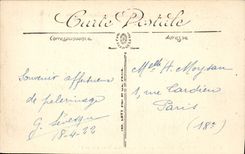 Carte Postale
Correspondance
Adresse
Souvenir affectueux
de pelerinage
18-4-22
Melle H. Meysan
1, rue Tardieu
Paris
(18e)